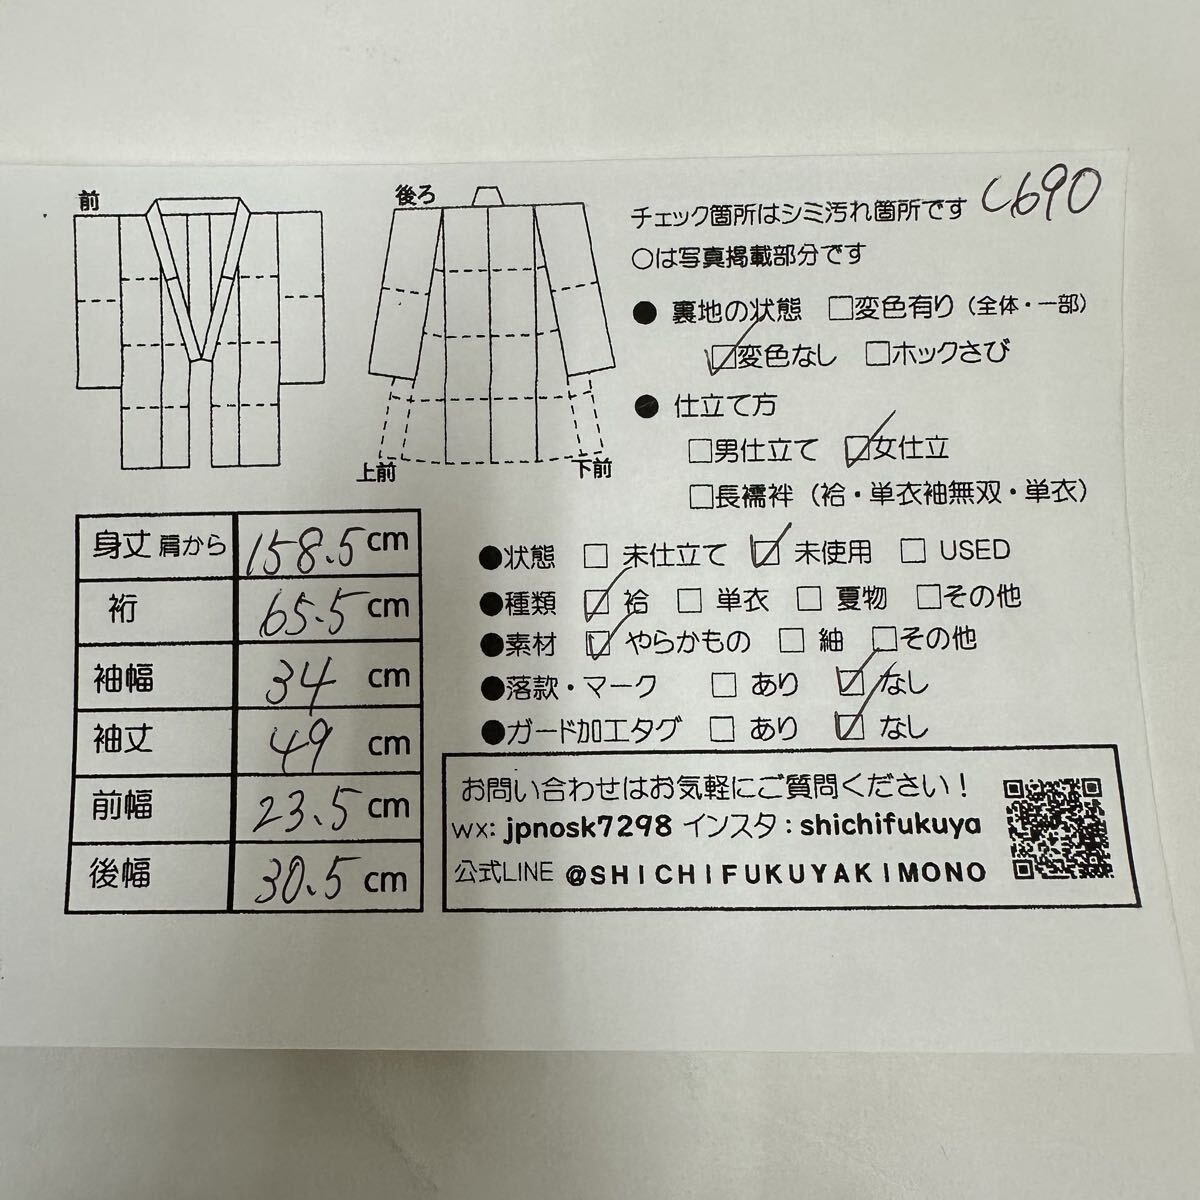 前
後ろ
上前
下前
チェック箇所はシミ汚れ箇所です
C690
○は写真掲載部分です
● 裏地の状態 □変色有り（全体・一部）
☑変色なし □ホックさび
● 仕立て方
□男仕立て ☑女仕立
□長襦袢（袷・単衣袖無双・単衣）
身丈 肩から 158.5 cm
裄 65.5 cm
袖幅 34 cm
袖丈 49 cm
前幅 23.5 cm
後幅 30.5 cm
●状態 □ 未仕立て ☑ 未使用 □ USED
●種類 ☑ 袷 □ 単衣 □ 夏物 □その他
●素材 ☑ やらかもの □ 紬 □その他
●落款・マーク □ あり ☑ なし
●ガード加工タグ □ あり ☑ なし
お問い合わせはお気軽にご質問ください！
wx: jpnosk7298 インスタ：shichifukuya
公式LINE @SHICHIFUKUYAKIMONO